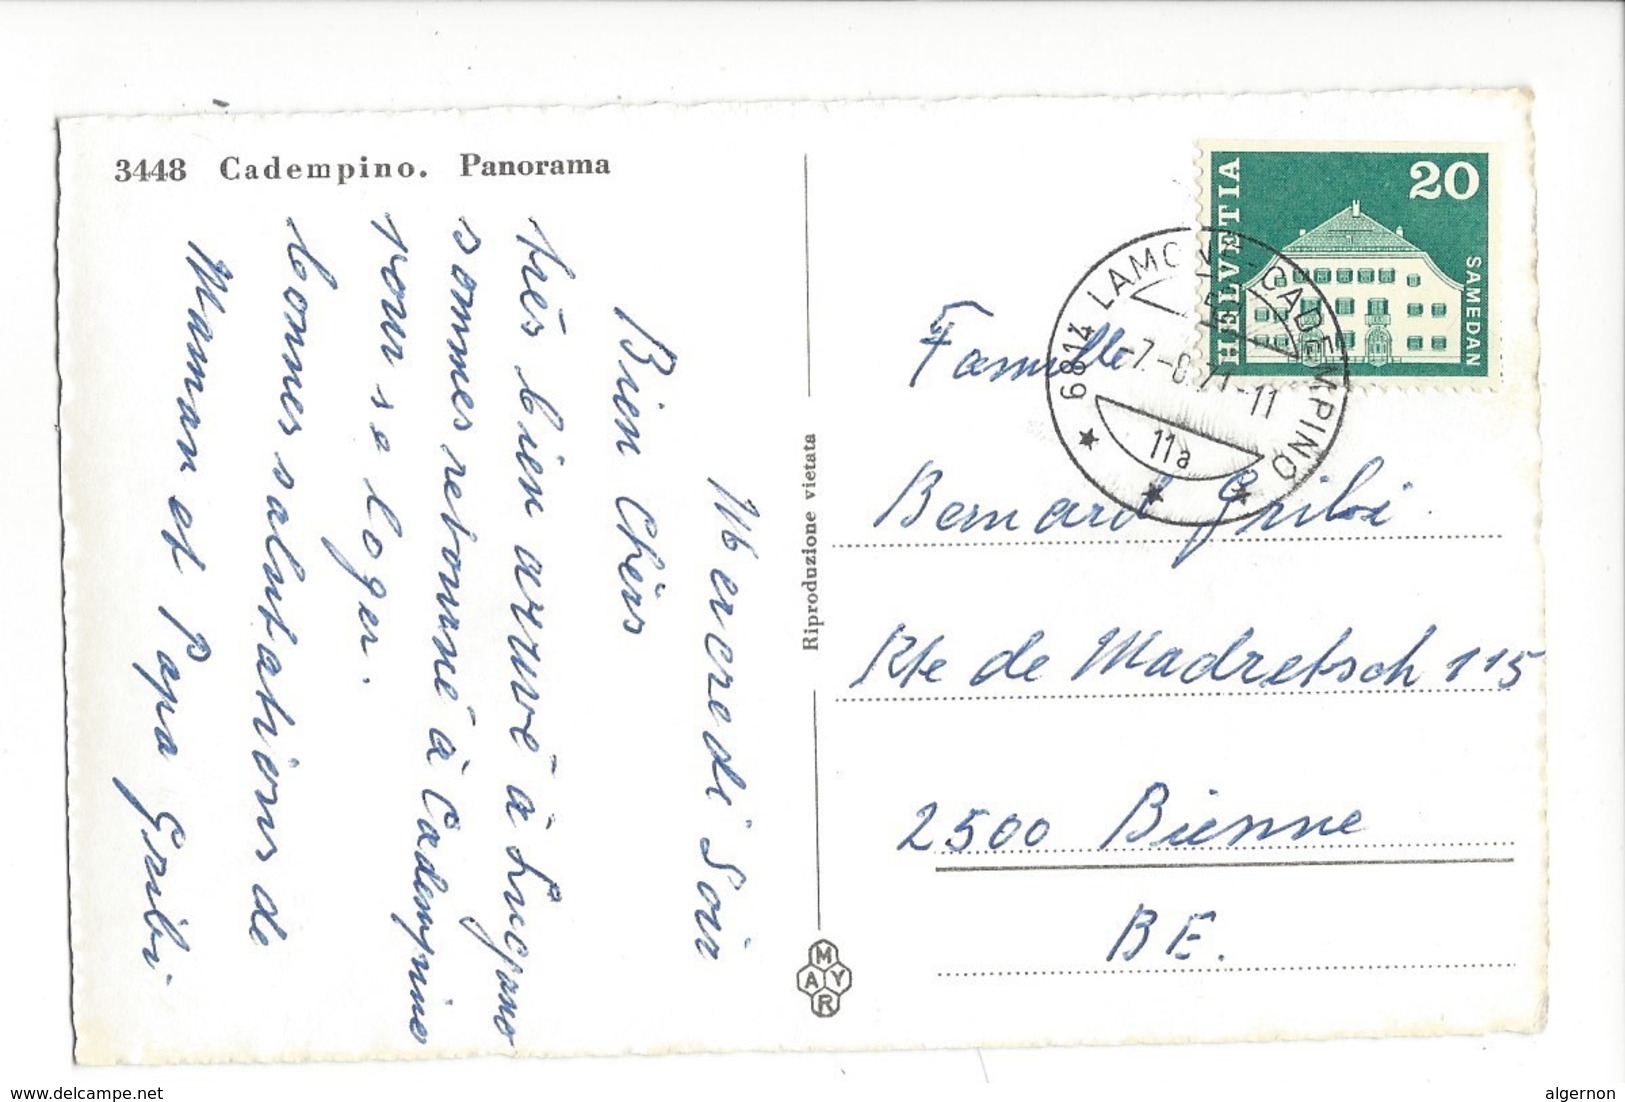 3448 Cadempino. Panorama
Mercredi Soir
Bien Chèrs
très bien arrivé à Lugano
sommes retourné à Cadempino
pour se loger.
bonnes salutations de
Maman et Papa Gribi
Riproduzione vietata
MAYR
HELVETIA
20
SAMEDAN
6814 LAMONE-CADEMPINO
-7.-8.71-11
11a
Famille
Bernard Gribi.
Rte de Madretsch 115
2500 Bienne
BE.
www.delcampe.net
algernon